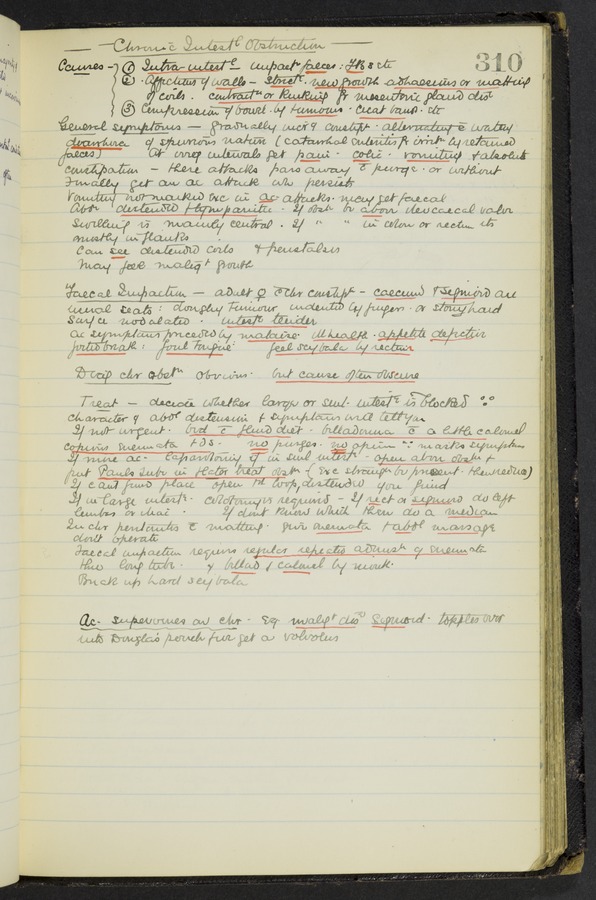 Chronic Intestl Obstruction
310
Causes - ① Intra-intestl impact faeces: F.B.s etc
② Affections of walls - Strict. new growth adhaesions or matting
of coils. contractn or kinking fr mesenteric gland dis
③ Compression of bowel by tumours. cicat bands. etc
General symptoms - gradually incrg constipt. alternating c̄ watery
diarrhoea of spurious nature (catarrhal enteritis fr irritn by retained
faeces) At irreg intervals get pain. colic. vomiting & absolute
constipation - these attacks pass away c̄ purge. or without
Finally get an ac attack wh persists
Vomiting not marked exc in ac attacks. may get faecal
Abdn distended & tympanitic. If obstn be above ileocaecal valve
swelling is mainly central. If " " in colon or rectum its
mostly in flanks
Can see distended coils & peristalsis
May feel maligt growth
Faecal Impaction - adult ♀ c̄ chr constipt - caecum & sigmoid are
usual seats: doughy tumour, indented by fingers. or stony hard
Surface nodulated. intestn tender
Ac symptoms preceded by malaise. ill health. appetite defective
foetid breath: foul tongue. feel scybala by rectum
Diag chr obstn obvious. but cause often obscure
Treat - decide whether large or sml intestn is blocked ∵
character of abdl distension & symptoms will tell you
If not urgent. bed c̄ fluid diet. belladonna c̄ a little calomel
copious enemata tds. no purges. no opium ∵ masks symptoms
If more ac. Laparotomy if in sml intestn. open above obstn &
put Pauls tube in & later treat obstn (exc strangn be present. then reduce)
If cant find place open the loop distended you find
If in large intestn. colotomy is required - If rect or sigmoid do left
lumbar or iliac. If dont know which then do a median
In chr peritonitis c̄ matting. give enemata & abdl massage
dont operate
Faecal impaction requires regular repeated administn of enemata
thro long tube. & bellad & calomel by mouth.
Break up hard scybala
Ac. supervenes on chr. Eg maligt dis Sigmoid. topples over
into Douglas pouch & you get a volvolus